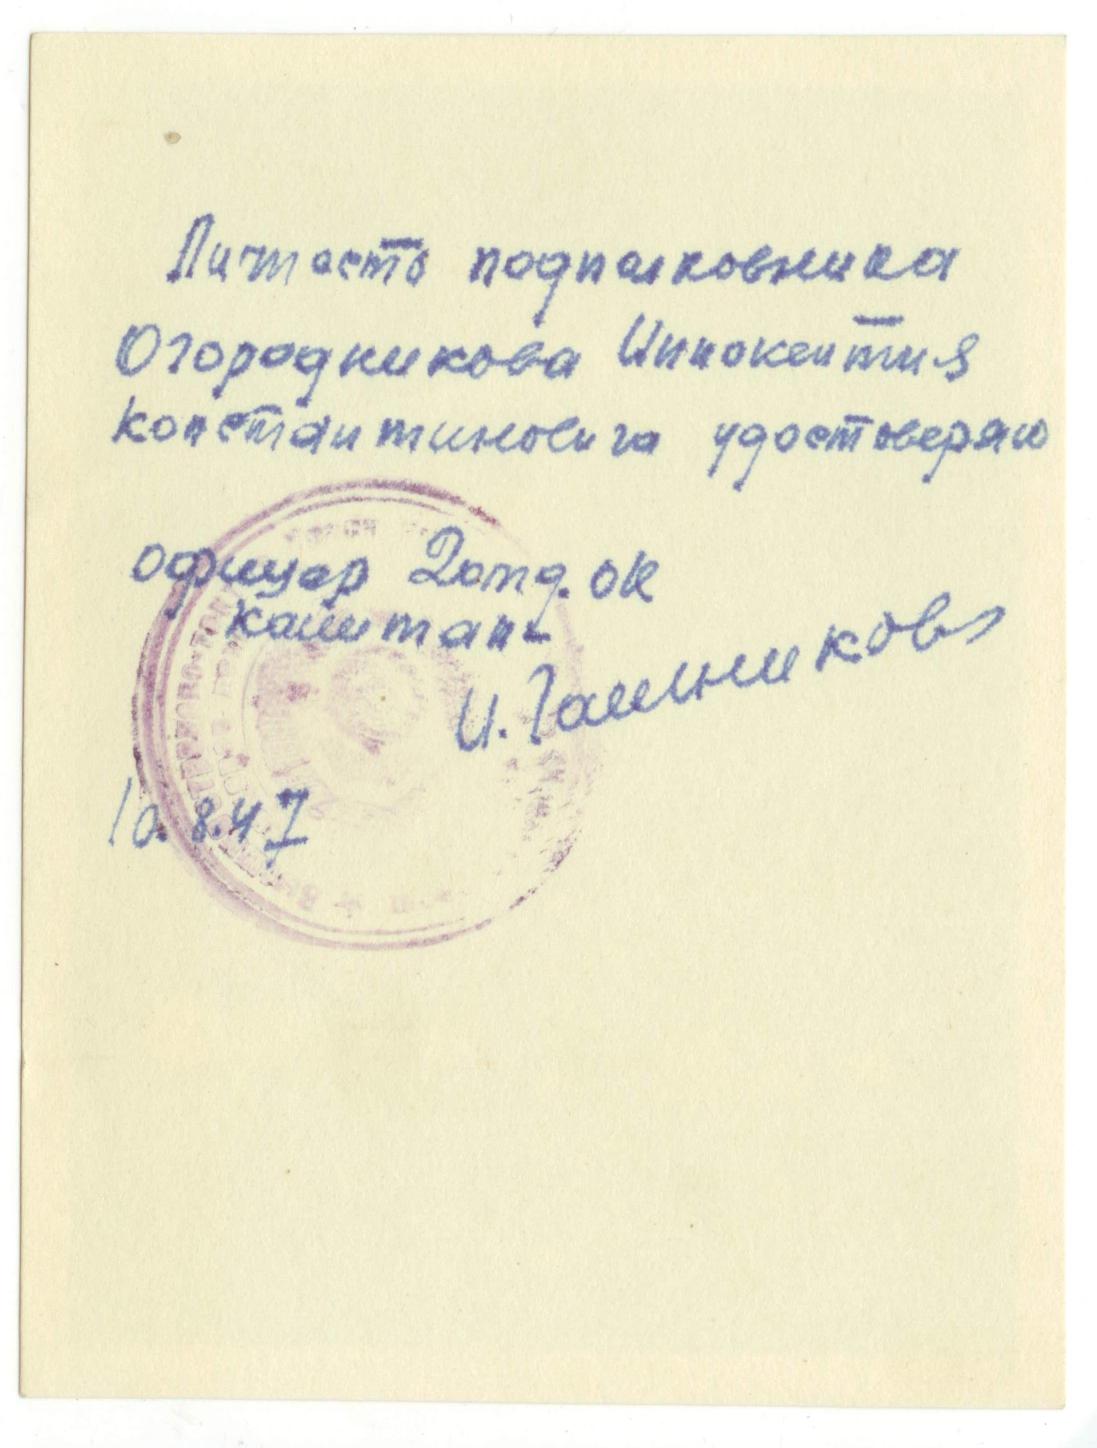 Личность подполковника
Огородникова Иннокентия
Константиновича удостоверяю
офицер 2 отд. ОК
капитан
И.
10.8.47